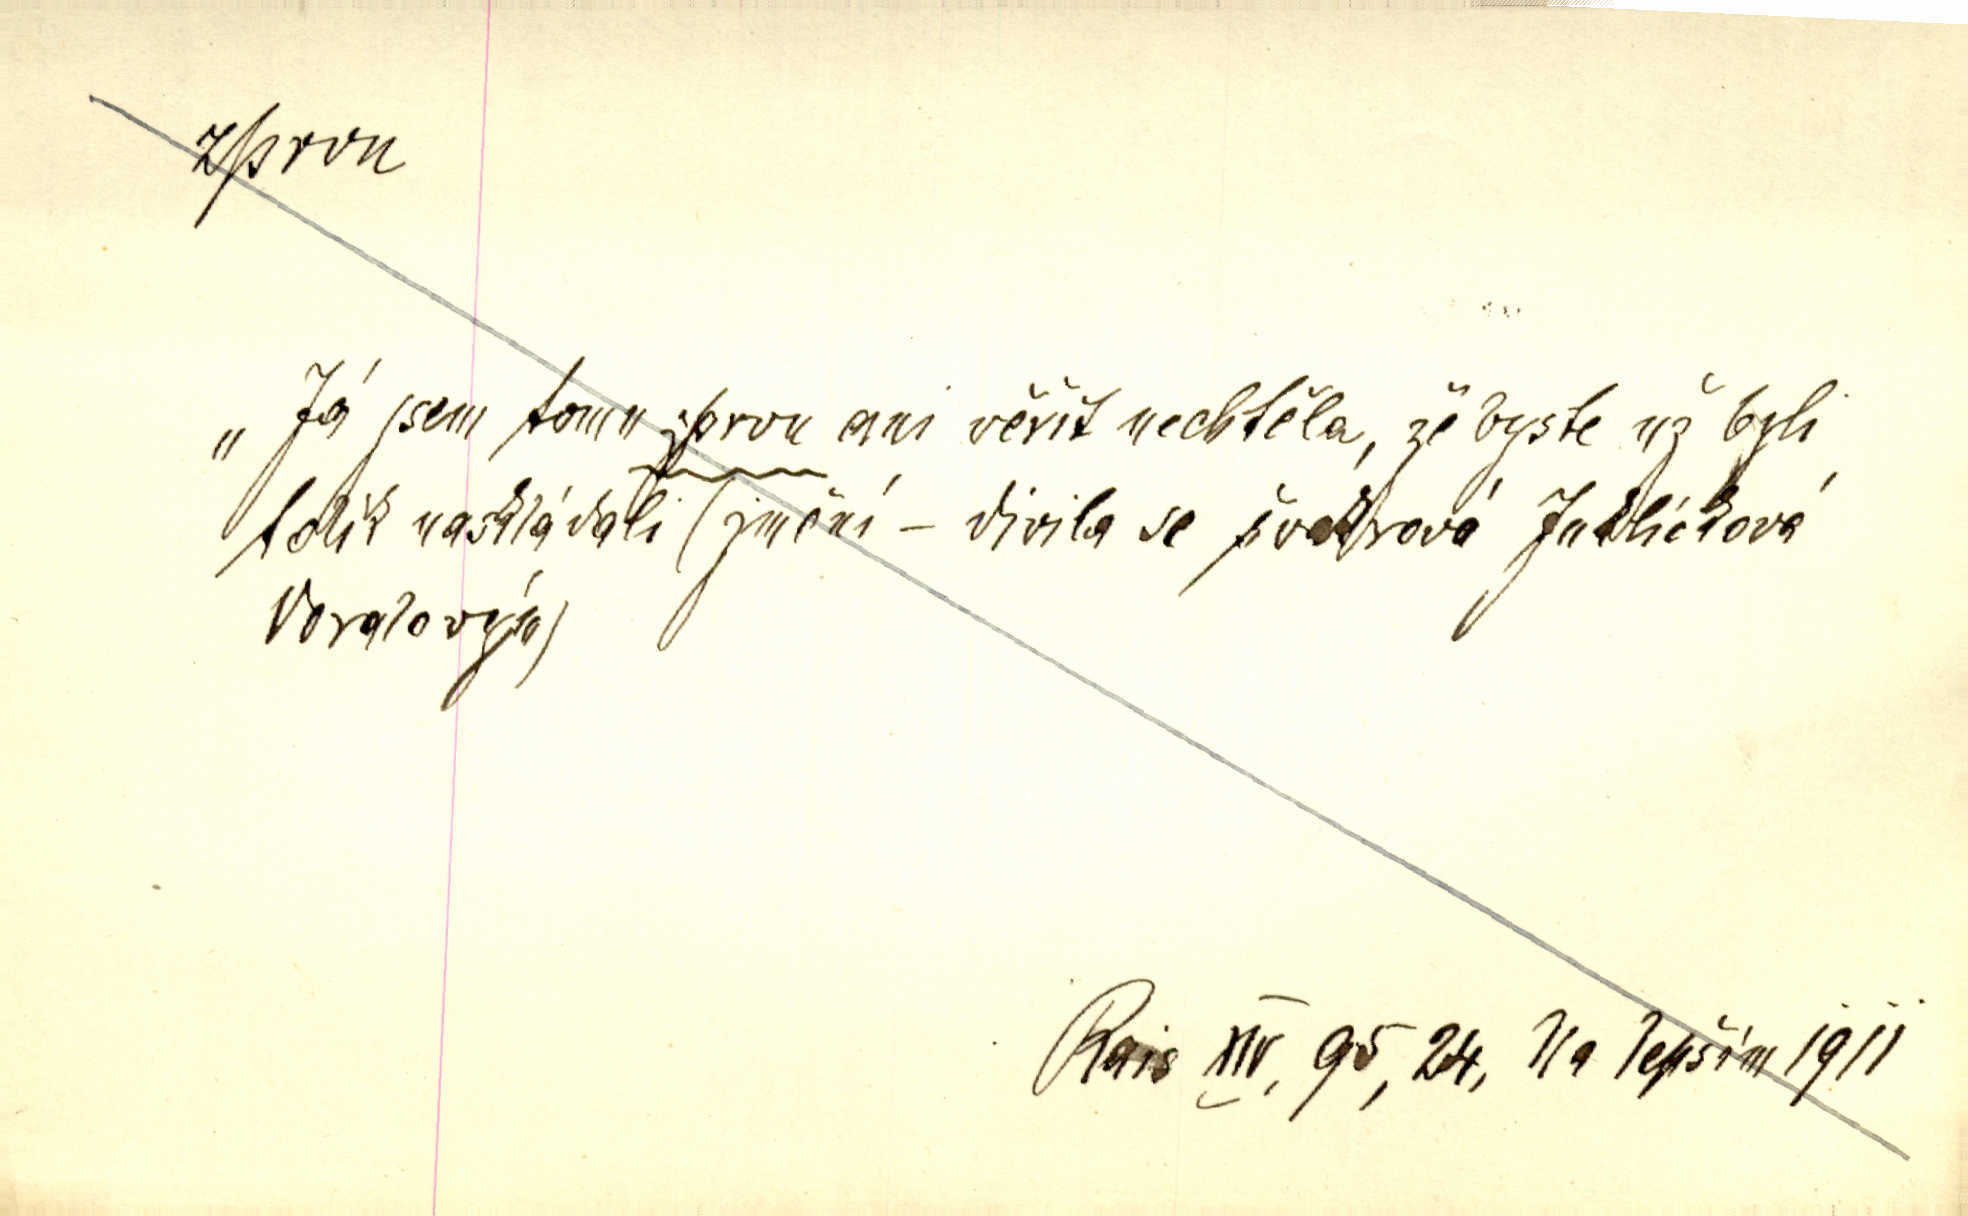 zprvu
„Já jsem tomu zprvu ani věřit nechtěla, že byste už byli
tolik naskládali (jmění – divila se švakrová Jukličková
Voralovým)
Rais XIV, 95, 24, Na lepším 1911